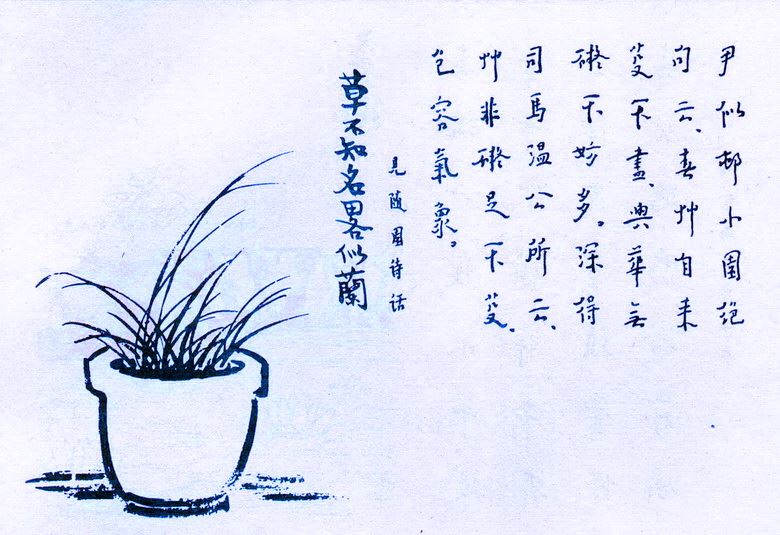 尹似邨小園絶
句云、春艸自来
芟不盡、與華無
礙不妨多。深得
司馬温公所云、
艸非礙足不芟、
包容氣象。
見隨園詩話
草不知名畧似蘭